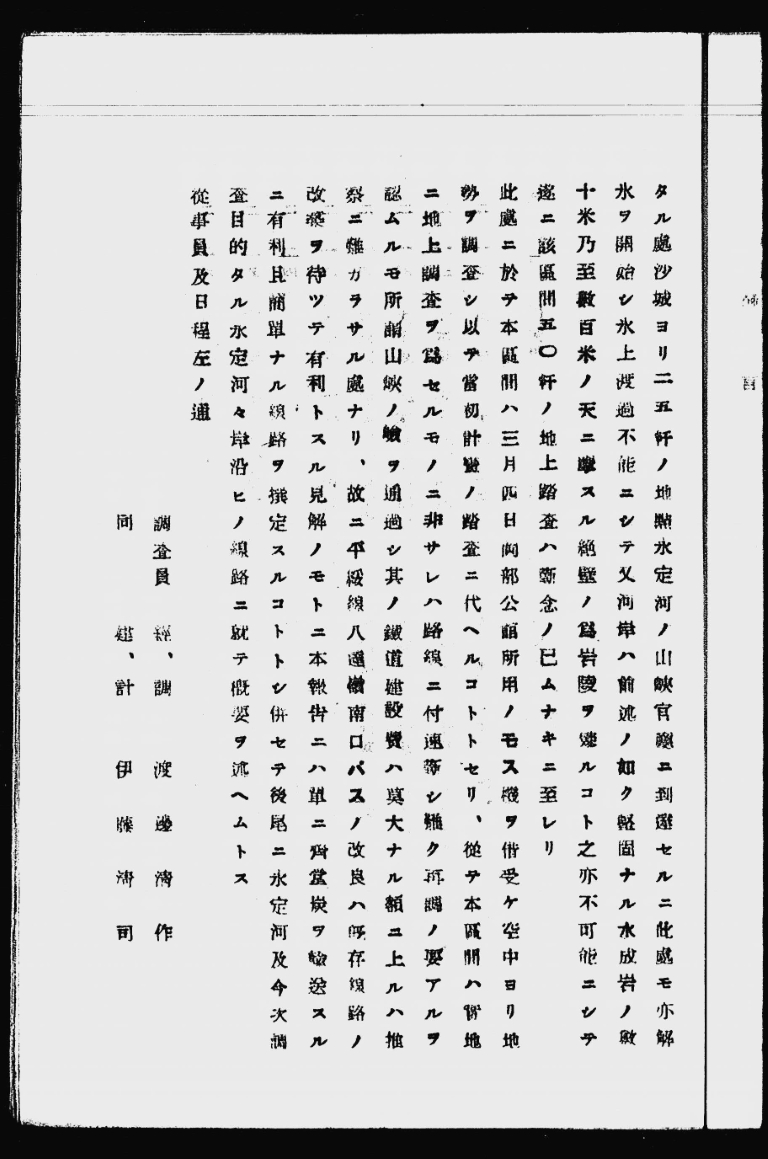 タル處沙城ヨリ二五粁ノ地點永定河ノ山峽官廳ニ到達セルニ此處モ亦解
氷ヲ開始シ氷上渡過不能ニシテ又河岸ハ前述ノ如ク輕固ナル水成岩ノ數
十米乃至數百米ノ天ニ聳スル絕壁ノ爲岩陵ヲ攀ルコト之亦不可能ニシテ
遂ニ該區間五〇粁ノ地上踏査ハ斷念ノ已ムナキニ至レリ
此處ニ於テ本區間ハ三月四日岡部公館所用ノモス機ヲ借受ケ空中ヨリ地
勢ヲ調査シ以テ當初計畫ノ踏査ニ代ヘルコトトセリ、從テ本區間ハ實地
ニ地上調査ヲ爲セルモノニ非サレハ路線ニ付速等シ難ク再調ノ要アルヲ
認ムルモ所謂山峽ノ嶮ヲ通過シ其ノ鐵道建設費ハ莫大ナル額ニ上ルハ推
察ニ難カラサル處ナリ、故ニ平綏線八達嶺南口パスノ改良ハ既存線路ノ
改築ヲ待ツテ有利トスル見解ノモトニ本報告ニハ單ニ齊堂炭ヲ輸送スル
ニ有利且簡單ナル線路ヲ撰定スルコトトシ併セテ後尾ニ永定河及今次調
査目的タル永定河々岸沿ヒノ線路ニ就テ概要ヲ述ヘムトス
從事員及日程左ノ通
調査員 經、調 渡邊濟作
同 建、計 伊藤淸司